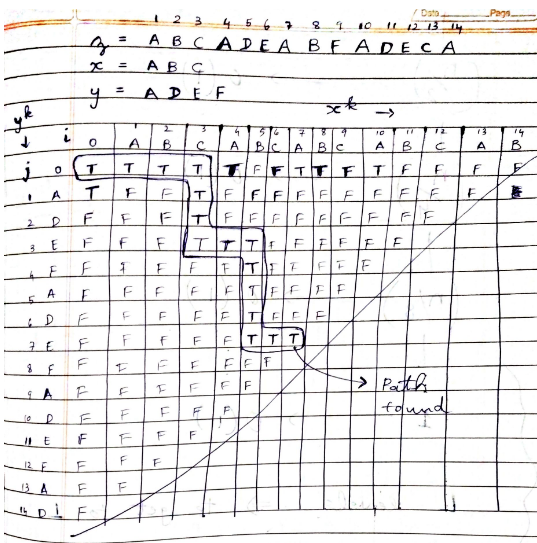 Date Page
1 2 3 4 5 6 7 8 9 10 11 12 13 14
z = A B C A D E A B F A D E C A
x = A B C
y = A D E F
x^k →
y^k ↓ i 0 1 2 3 4 5 6 7 8 9 10 11 12 13 14
A B C A B C A B C A B C A B
j 0 T T T T T F F T T F T F F F F
1 A T F F T F F F F F F F F F F
2 D F F F T F F F F F F F F F
3 E F F F T T T F F F F F F
4 F F F F F F T F F F F F
5 A F F F F F T F F F F
6 D F F F F F T F F F
7 E F F F F F T T T
8 F F F F F F F F
9 A F F F F F F
10 D F F F F F
11 E F F F F
12 F F F F
13 A F F
14 D F
Path
found